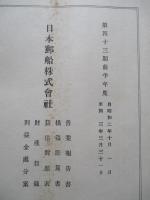 第四十三期前半年度
自昭和二年十月一日
至同三年三月三十一日
日本郵船株式會社
營業報告書
貸借對照表
損益計算書
財産目録
利益金處分案